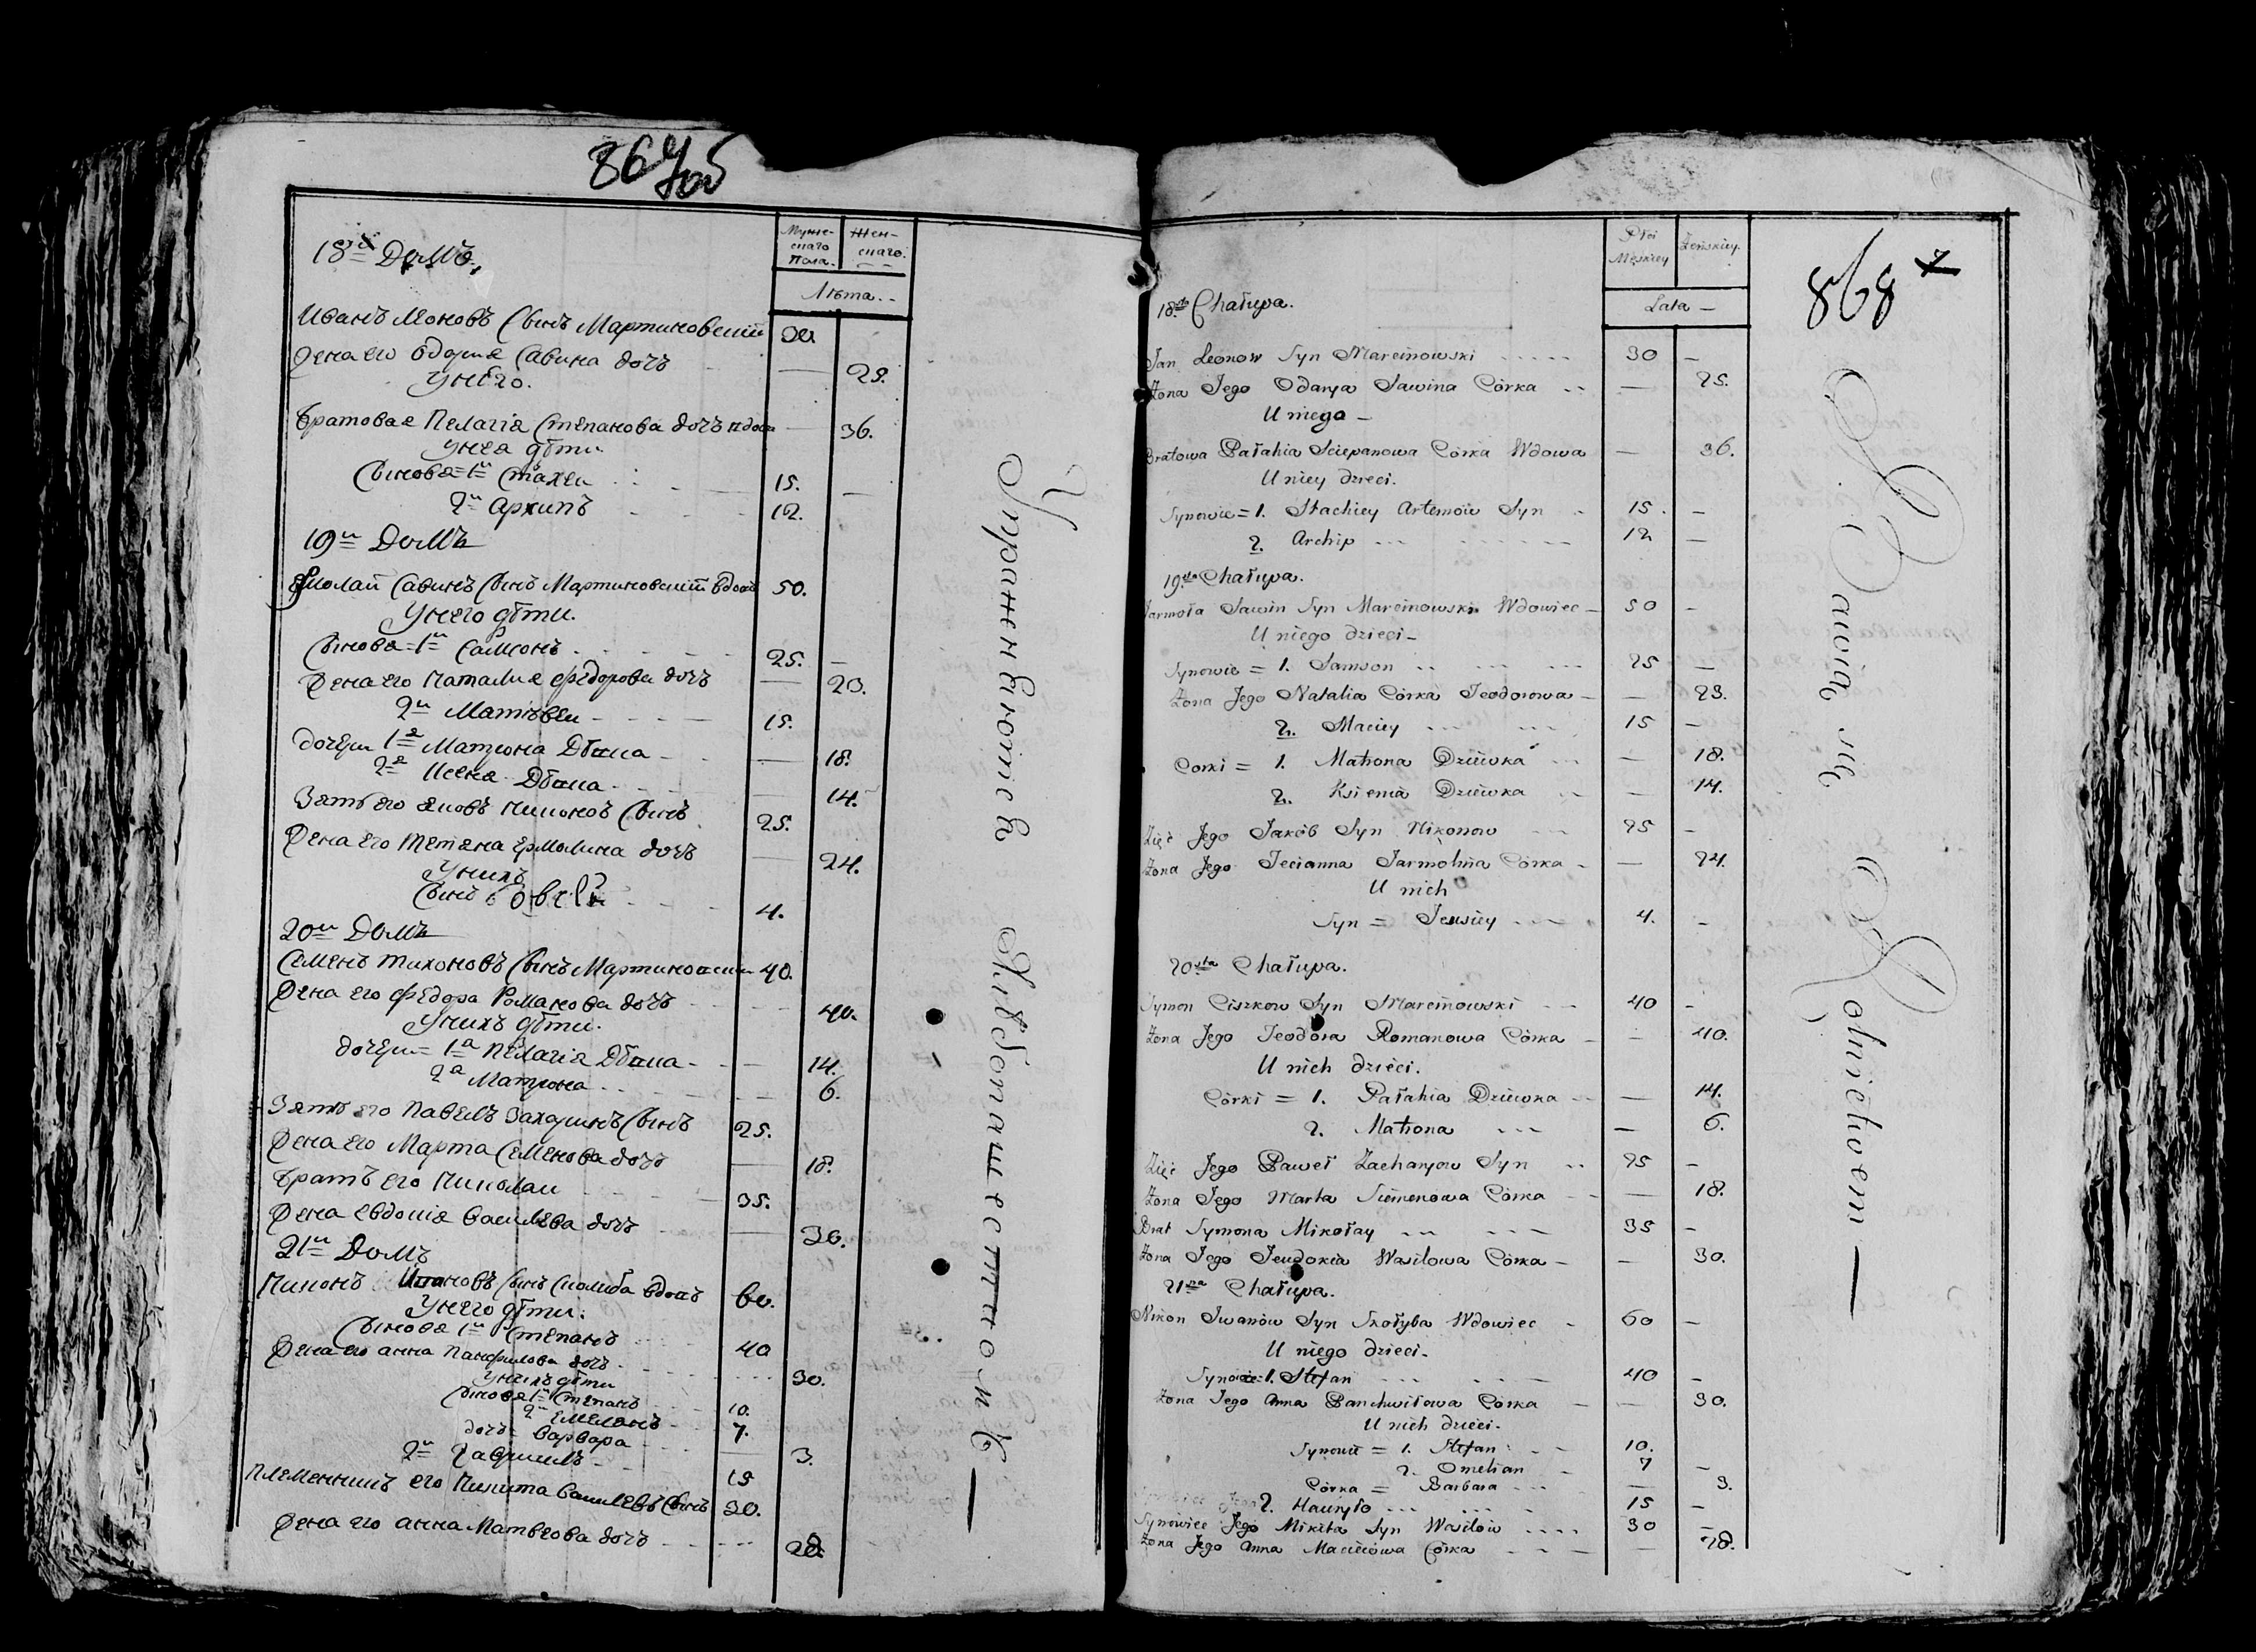 867 об
18й Домъ.
Муже-
скаго
Пола.
Жен-
скаго.
Лѣта.
Иванъ Сынъ Мартиновскій 30
Жена его Одарія Савина дочь — 25.
У него.
Братовая Пелагія Степанова дочь вдова — 36.
У нея дѣти
Сыновя = 1й Стахей 15. —
2й Архипъ 12.
19й Домъ
Ярмолай Савинъ Сынъ Мартиновскій вдовъ 50.
У него дѣти.
Сыновя = 1й Самсонъ 25. —
Жена его Наталия Федорова дочь — 23.
2й Матѣвей 15.
Дочери 1я Матрона Дѣвка — 18.
2я Ксеня Дѣвка — 14.
Зять его Яковъ Никоновъ Сынъ 25.
Жена его Тетяна Ермолина дочь — 24.
У нихъ
Сынъ 4.
20й Домъ
Семенъ Тихоновъ Сынъ Мартиновский 40.
Жена его Федора Романова дочь 40.
У нихъ дѣти.
Дочери = 1я Пелагія Дѣвка 14.
2я Матрона 6.
Зять его Павелъ Захаринъ Сынъ 25.
Жена его Марта Семенова дочь — 18.
Братъ его Николай 35.
Жена Евдокія Василева дочь — 30.
21й Домъ
Никонъ Ивановъ Сынъ Сколиба вдовъ 60.
У него дѣти.
Сыновя 1й Степанъ 40
Жена его Анна Панфилова дочь 30.
У нихъ дѣти
Сыновя 1й Степанъ 10.
2й Емелянъ 7.
дочь Варвара — 3.
2й Гаврилъ 15
Племенникъ его Никита Василевъ Сынъ 30.
Жена его Анна Матвеова дочь 28.
Упражнѣются Хлѣбопашествомъ —
868
Płci
Męskiey
Żeńskiey.
Lata —
18sta Chałupa.
Jan Leonow Syn Marcinowski 30 —
Żona Jego Odarya Sawina Córka — 25.
U niego —
Bratowa Pałahia Sciepanowa Córka Wdowa — 36.
U niey dzieci.
Synowie = 1. Stachiey Artemów Syn 15. —
2. Archip 12 —
19sta Chałupa.
Jarmoła Sawin Syn Marcinowski Wdowiec — 50 —
U niego dzieci —
Synowie = 1. Samson 25 —
Żona Jego Natalia Córka Teodorowa — — 23.
2. Maciey 15 —
Corki = 1. Matrona Dziewka — 18.
2. Ksienia Dziewka — 14.
Zięć Jego Jakób Syn Nikonow 25 —
Żona Jego Tecianna Jarmolina Córka — — 24.
U nich
Syn = Jewsiey 4. —
20sta Chałupa.
Symon Ciszkow Syn Marcinowski 40 —
Żona Jego Teodora Romanowa Córka — 40.
U nich dzieci.
Córki = 1. Pałahia Dziewka — 14.
2. Matrona — 6.
Zięć Jego Paweł Zacharyow Syn 25 —
Żona Jego Marta Siemenowa Córka — 18.
Brat Symona Mikołay 35 —
Żona Jego Jeudokia Wasilowa Córka — — 30.
21sza Chałupa.
Nikon Iwanów Syn Skołyba Wdowiec 60 —
U niego dzieci —
Synowie = 1. Stefan 40 —
Żona Jego Anna Panchwiłowa Córka — 30.
U nich dzieci.
Synowie = 1. Stefan 10.
2. Omelian 7 —
Córka = Barbara — 3.
2. Hauryło 15 —
Synowiec Jego Mikita Syn Wasilów 30 —
Żona Jego Anna Macieiowa Córka — 28.
Bawią się Rolnictwem —